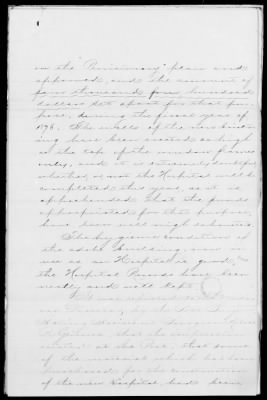 on the "Provisional" plan and
approved, and the amount of
four thousand four hundred
dollars set apart for that pur-
pose, during the fiscal year of
1876. The walls of the new build-
ing have been erected as high
as the top of the window frames
only, and it is extremely doubtful
whether or not the Hospital will be
completed this year, as it is
apprehended that the funds
appropriated for the purpose,
have been well nigh exhausted.
The hygienic condition of
the adobe building, now in
use as an Hospital is good, and
the Hospital Records have been
neatly and well kept.
It was reported to
by the Post
that the
at the Post, that some
of the material which had been
purchased for the construction
of the new Hospital, had been